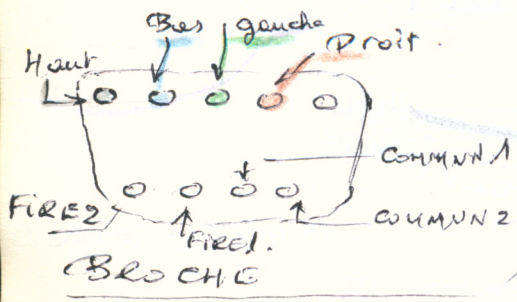 Bas gauche
Droit.
Haut
COMMUN.1
FIRE2
COMMUN 2
FIRE1.
BROCHE